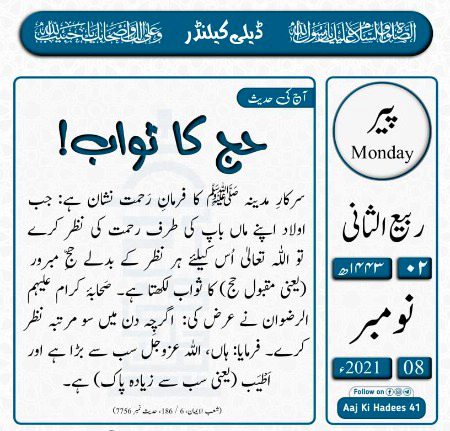 الصلوٰۃ والسلام علیک یارسول اللہ
ڈیلی کیلنڈر
وعلیٰ اٰلک واصحابک یاحبیب اللہ
آج کی حدیث
حج کا ثواب!
سرکارِ مدینہ ﷺ کا فرمانِ رَحمت نشان ہے: جب
اولاد اپنے ماں باپ کی طرف رحمت کی نظر کرے
تو اللہ تعالیٰ اُس کیلئے ہر نظر کے بدلے حجِّ مبرور
(یعنی مقبول حج) کا ثواب لکھتا ہے۔ صحابۂ کرام علیہم
الرضوان نے عرض کی: اگرچہ دن میں سو مرتبہ نظر
کرے۔ فرمایا: ہاں، اللہ عزوجل سب سے بڑا ہے اور
اَطْیَب (یعنی سب سے زیادہ پاک) ہے۔
(شعب الایمان، 6 / 186، حدیث نمبر 7756)
پیر
Monday
ربیع الثانی
۰۲ ۱۴۴۳ھ
نومبر
08 2021ء
Follow on
Aaj Ki Hadees 41